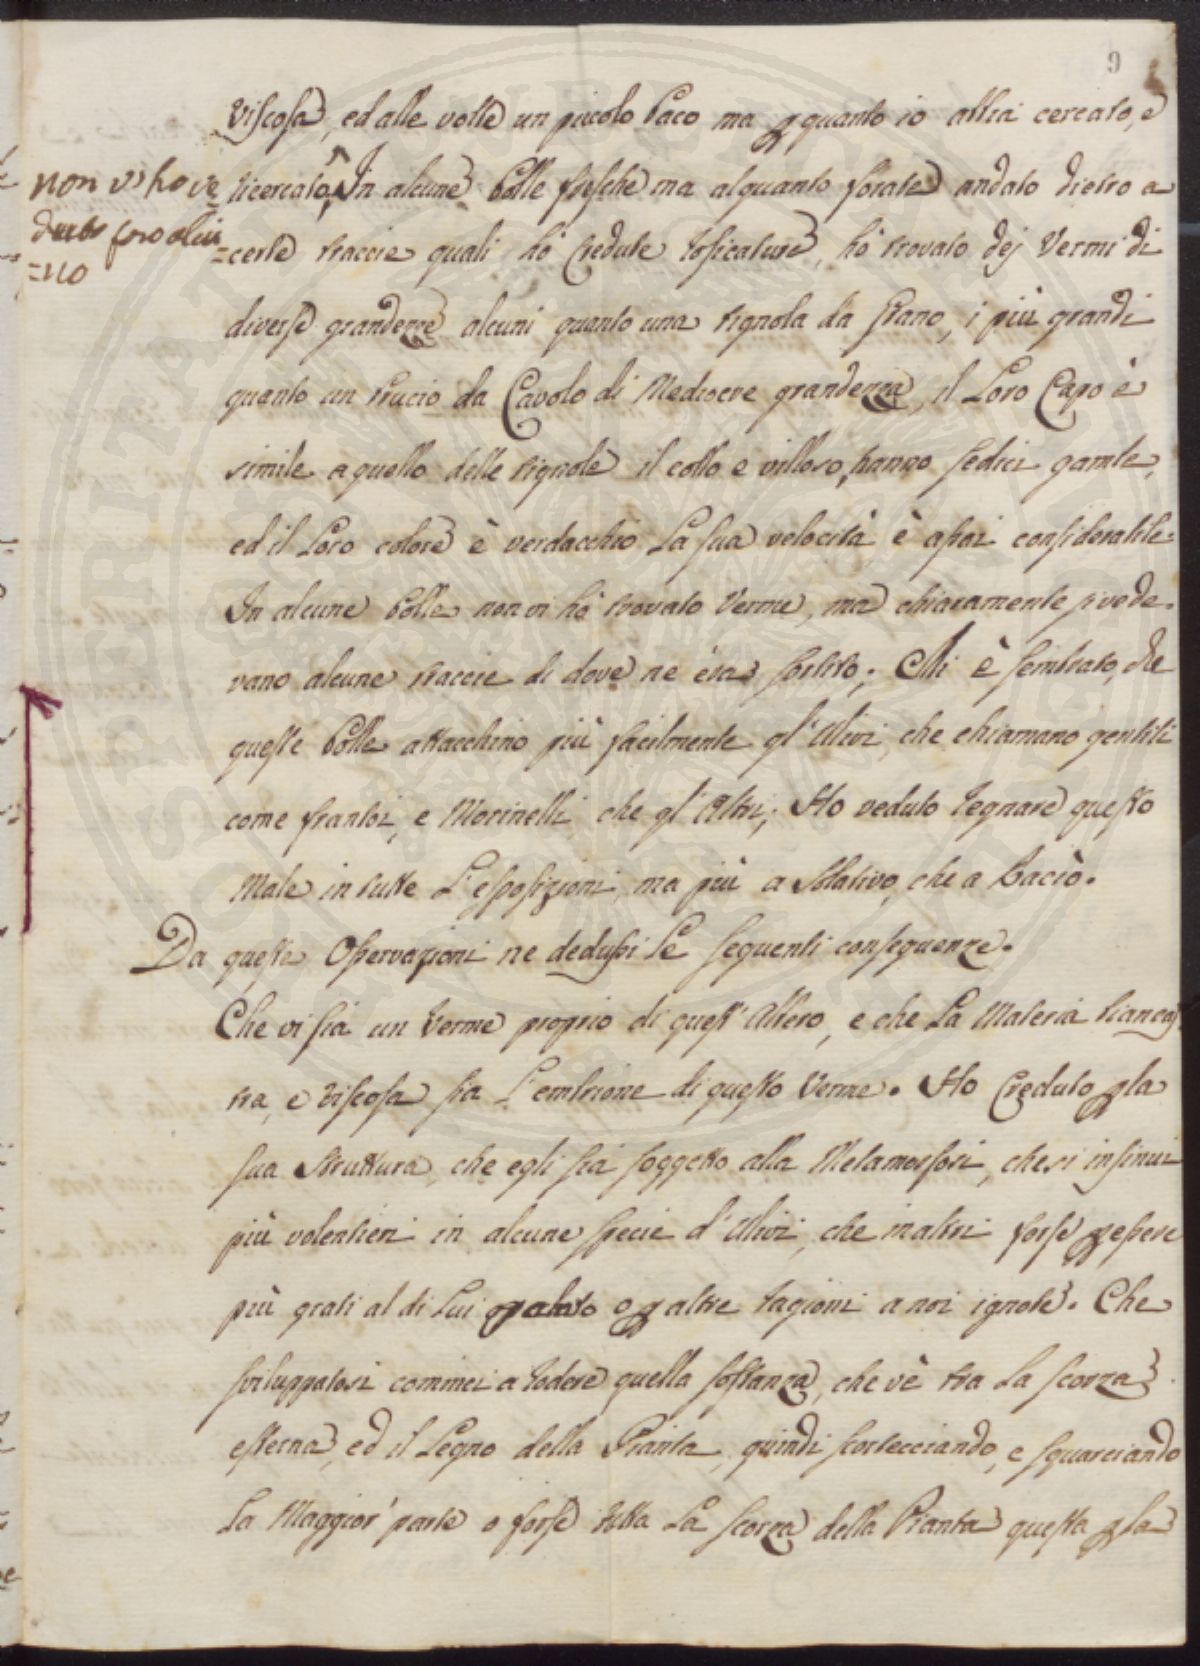 9
viscosa, ed alle volte un piccolo baco ma p quanto io abbia cercato, e
non v'ho ve
duto foro alcu
=no
ricercato, In alcune bolle fresche ma alquanto forate andato dietro a
certe traccie quali hò credute rosicature, hò trovato dej Vermi di
diverse grandezze alcuni quanto una tignola da Grano, i più grandi
quanto un brucio da Cavolo di Mediocre grandezza, il Loro Capo è
simile a quello delle tignole il collo e villoso, hanno sedici gambe,
ed il Loro colore è verdacchio La sua velocità è assai considerabile.
In alcune bolle non vi hò trovato Verme, ma chiaramente si vede-
vano alcune traccie di dove ne era sortito; Mi è sembrato, che
queste bolle attacchino più facilmente gl'Ulivi, che chiamano gentili
come frantoi, e Morinelli che gl'Altri; Ho veduto regnare questo
Male in tutte L'esposizioni, ma più a Solativo, che a bacìo.
Da queste Osservazioni ne dedussi Le seguenti conseguenze.
Che vi sia un Verme proprio di quest'Albero, e che La Materia biancas
tra, e viscosa sia L'embrione di questo Verme. Ho Creduto p la
sua Struttura, che egli sia soggetto alla Metamorfosi, che si insinui
più volentieri in alcune specie d'Ulivi, che in altri forse p essere
più grati al di Lui palato o p altre ragioni a noi ignote. Che
sviluppatosi cominci a rodere quella sostanza, che v'è tra La scorza
esterna, ed il Legno della Pianta, quindi scortecciando, e squarciando
La Maggior parte o forse tutta La scorza della Pianta questa p la